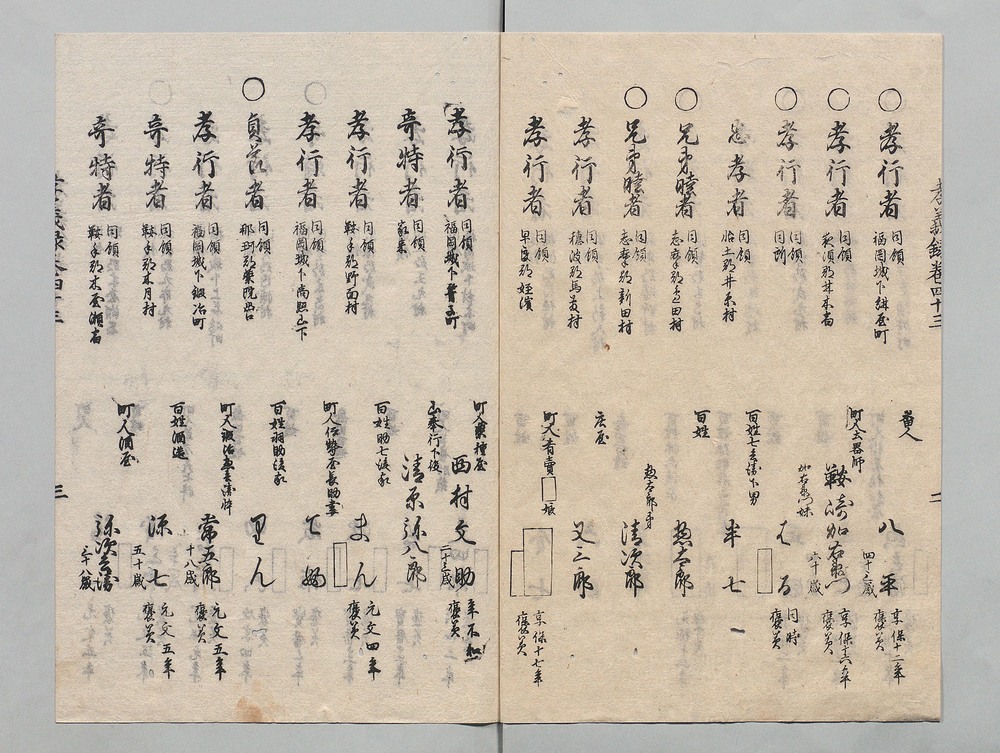 孝義録卷四十三
二
○孝行者 同領福岡城下紺屋町 盲人 八平 四十三歳 享保十二年褒美
○孝行者 同領 町人土器師 鞍淵加右衛門 六十歳 享保十六年褒美
○孝行者 同領同所 加右衛門妹 はる 同時褒美
忠孝者 同領怡土郡井原村 百姓七兵衛下男 半七
○兄弟睦者 同領志摩郡吉田村 百姓 惣太郎
○兄弟睦者 同領志摩郡新田村 惣太郎弟 清次郎
孝行者 同領穂波郡馬敷村 庄屋 又三郎
孝行者 同領早良郡姪濱 町人肴賣 娘 享保十七年褒美
孝行者 同領福岡城下 町人藥種屋 西村文助 二十三歳 年不知褒美
奇特者 同領家来 山奉行下役 清原弥八郎
孝行者 同領鞍手郡野面村 百姓助七後家 まん 元文四年褒美
○孝行者 同領福岡城下 町人伊勢屋長助妻
○貞節者 同領那珂郡藥院 百姓羽助後家 里ん
孝行者 同領福岡城下鍛冶町 町人鍛冶 常五郎 十八歳 元文五年褒美
○奇特者 同領鞍手郡木月村 百姓酒造 源七 五十歳 元文五年褒美
奇特者 同領鞍手郡木屋瀬宿 町人酒屋 弥次兵衛 三十八歳
孝義録卷四十三
三